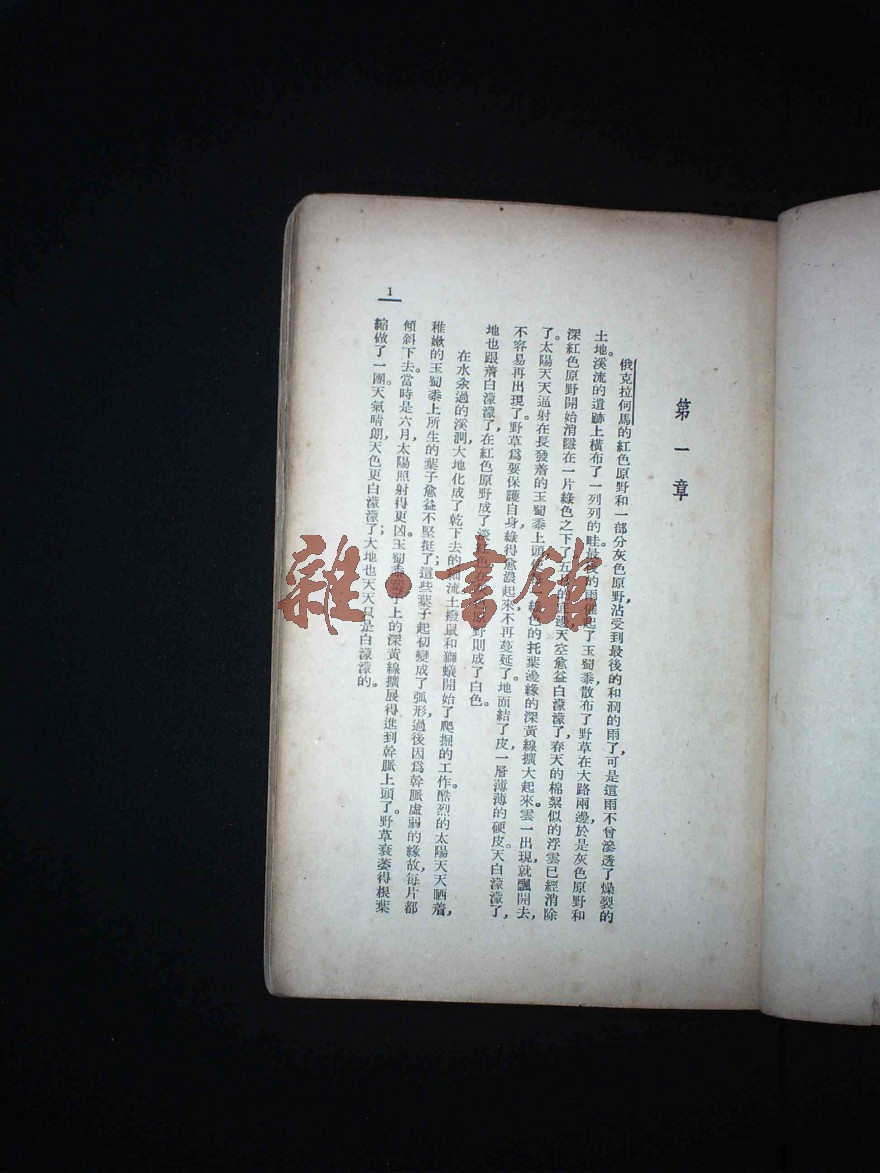 第一章
俄克拉何馬的紅色原野和一部分灰色原野沾受到最後的和潤的雨了，可是這雨不曾滲透了燥裂的
土地。溪流的遺跡上橫布了一列列的畦。最後的雨催起了玉蜀黍，散布了野草在大路兩邊，於是灰色原野和
深紅色原野開始消隱在一片綠色之下了。五月的 天空愈益白濛濛了，春天的棉絮似的浮雲已經消除
了。太陽天天逼射在長發着的玉蜀黍上頭， 綠色的托葉邊緣的深黃線擴大起來。雲一出現，就飄開去，
不容易再出現了。野草爲要保護自身，綠得愈濃起來，不再蔓延了。地面結了皮，一層薄薄的硬皮。天白濛濛了，
地也跟着白濛濛了，在紅色原野成了淡紅色，在灰色原野則成了白色。
在水汆過的溪澗，大地化成了乾下去的細流。土撥鼠和獅蟻開始了爬掘的工作。酷烈的太陽天天晒着，
稚嫩的玉蜀黍上所生的葉子愈益不堅挺了；這些葉子起初變成了弧形，過後因爲幹脈虛弱的緣故，每片都
傾斜下去。當時是六月，太陽照射得更凶。玉蜀黍葉子上的深黃線擴展得進到幹脈上頭了。野草衰萎得根葉
縮做了一團。天氣晴朗，天色更白濛濛了；大地也天天只是白濛濛的。
1
雜·書館